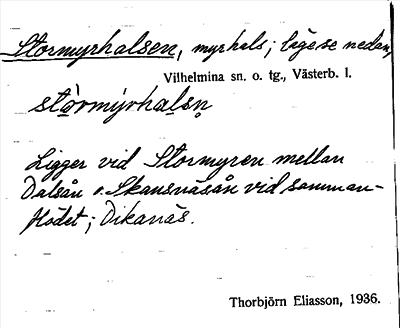 Stormyrhalsen, myrhals; läge se nedan,
Vilhelmina sn. o. tg., Västerb. l.
stòrmýrhaḷsṇ
Ligger vid Stormyren mellan
Dalsån o. Skansnäsån vid samman-
flödet; Dikanäs.
Thorbjörn Eliasson, 1936.